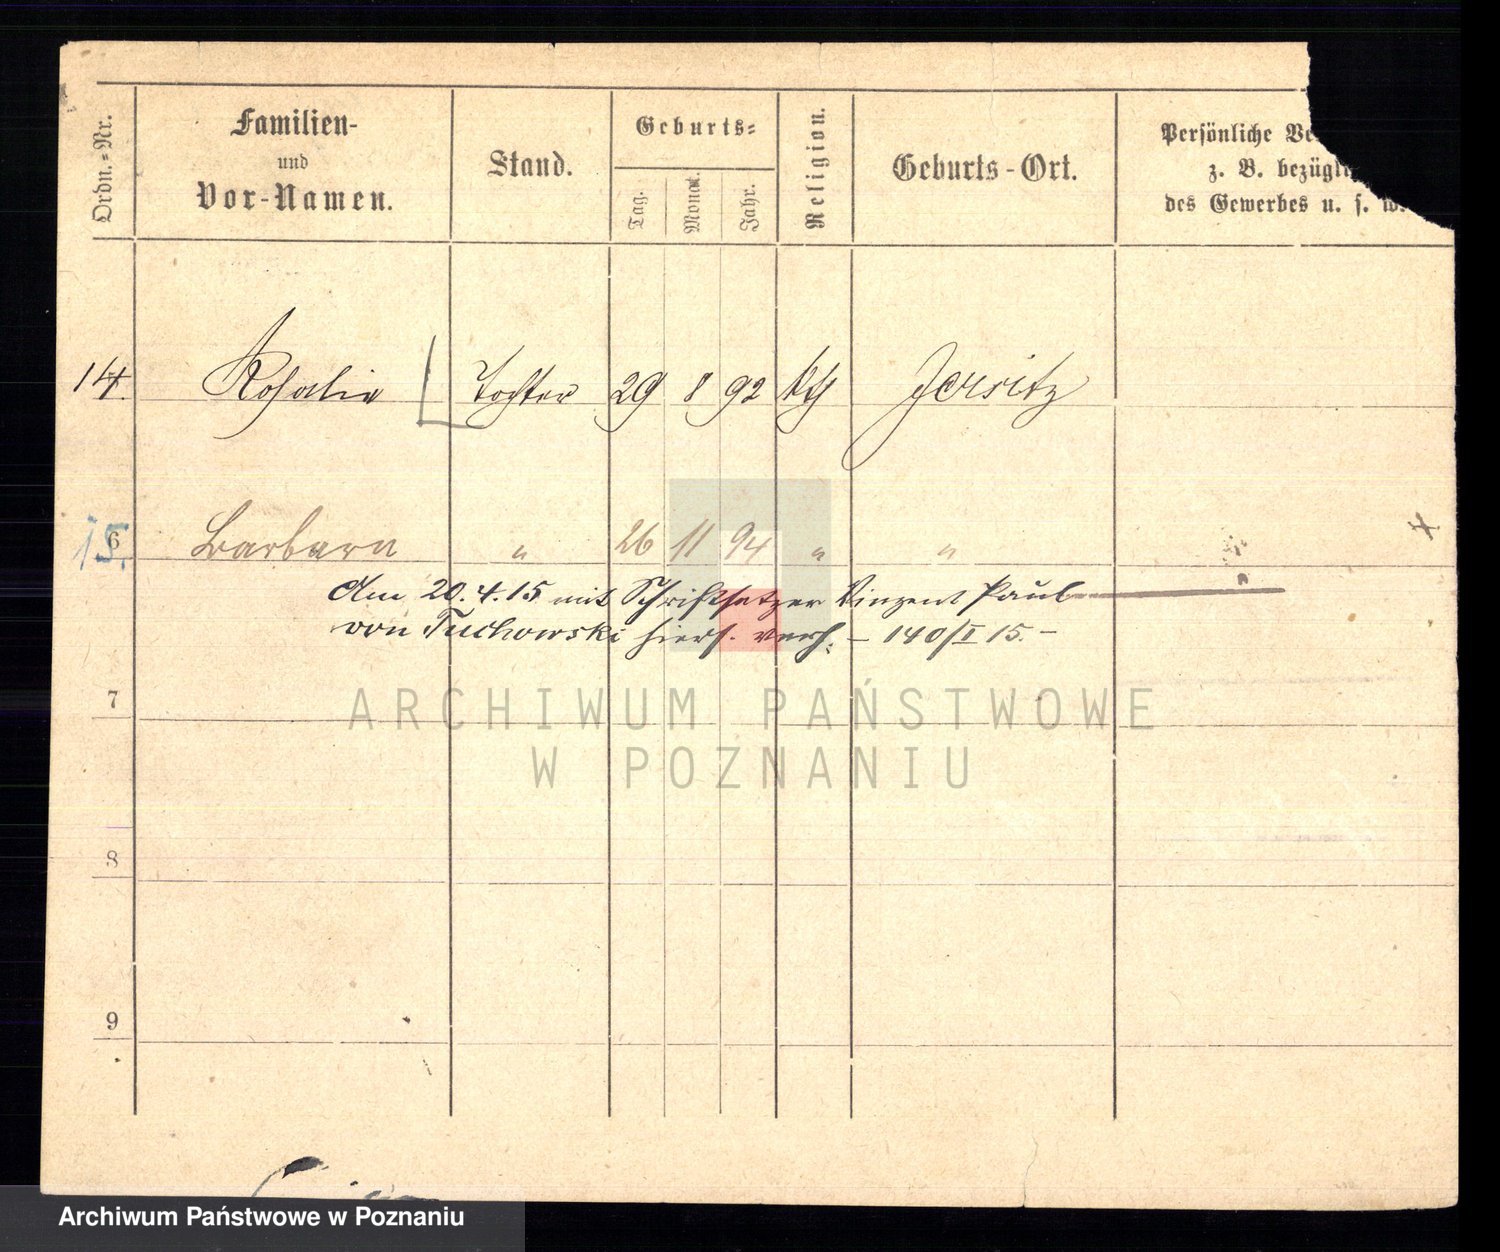 Ordn.=Nr.
Familien-
und
Vor-Namen.
Stand.
Geburts=
Tag.
Monat.
Jahr.
Religion.
Geburts-Ort.
Persönliche
z. B.
des Gewerbes u. s. w.
14. Rosalie Tochter 29 8 92 kth Jersitz
6 15. Barbara " 26 11 94 " "
Am 20.4.15 mit Schriftsetzer Vinzent Paul
von Tuchowski hiers. verh. – 140/I 15. –
7
8
9
ARCHIWUM PAŃSTWOWE
W POZNANIU
Archiwum Państwowe w Poznaniu